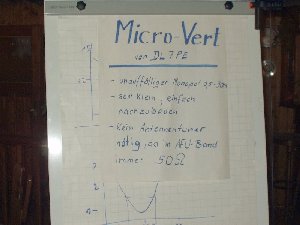 Micro-Vert
von DL7PE
- unauffälliger Monopol
- sehr klein, einfach
nachzubauen
- Kein Antennentuner
nötig, da im AFU-Band
immer 50Ω